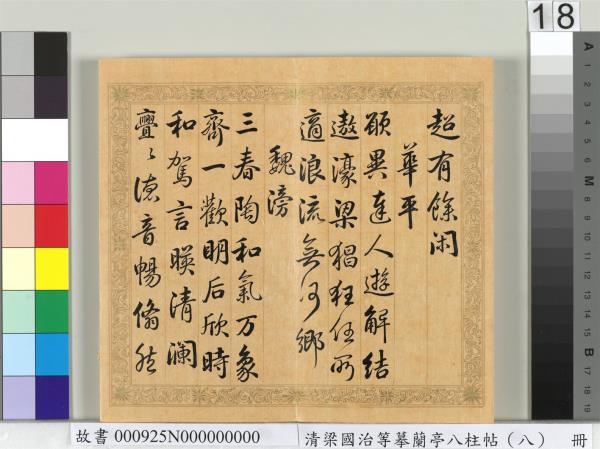 18
超有餘閑
華平
願異達人遊解結
遨濠梁狷狂任所
適浪流無何鄉
魏滂
三春陶和氣万象
齊一歡明后欣時
和駕言暎清瀾
亹々德音暢脩然
A
1
2
3
4
5
6
M
8
9
10
11
12
13
14
15
B
17
18
19
故書 000925N000000000
清梁國治等摹蘭亭八柱帖（八） 冊